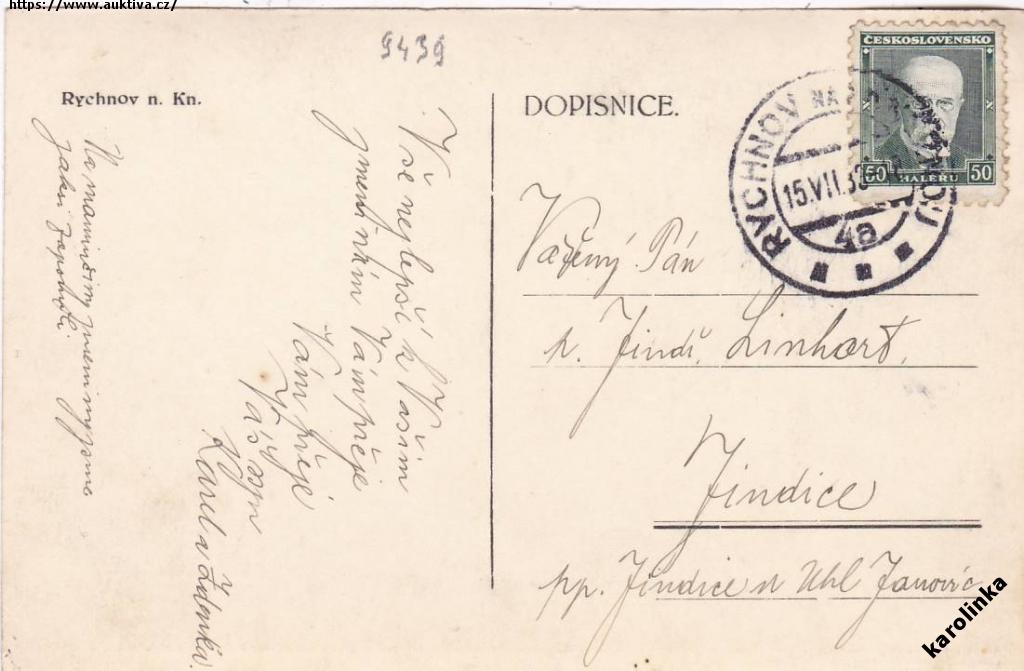 https://www.auktiva.cz/
9439
Rychnov n. Kn.
DOPISNICE.
ČESKOSLOVENSKO
50 HALÉŘŮ 50
RYCHNOV NAD KNĚŽNOU
15.VII.3
4a
Vše nejlepší k Vašim
jmeninám Vám přeje
Vám přeje
Váš syn
Karel a Zdenka.
Na maminčiny jmeniny jsme
Vážený Pán
p. Jindř. Linhart.
Jindice
pp. Jindice u Uhl Janovic
karolinka